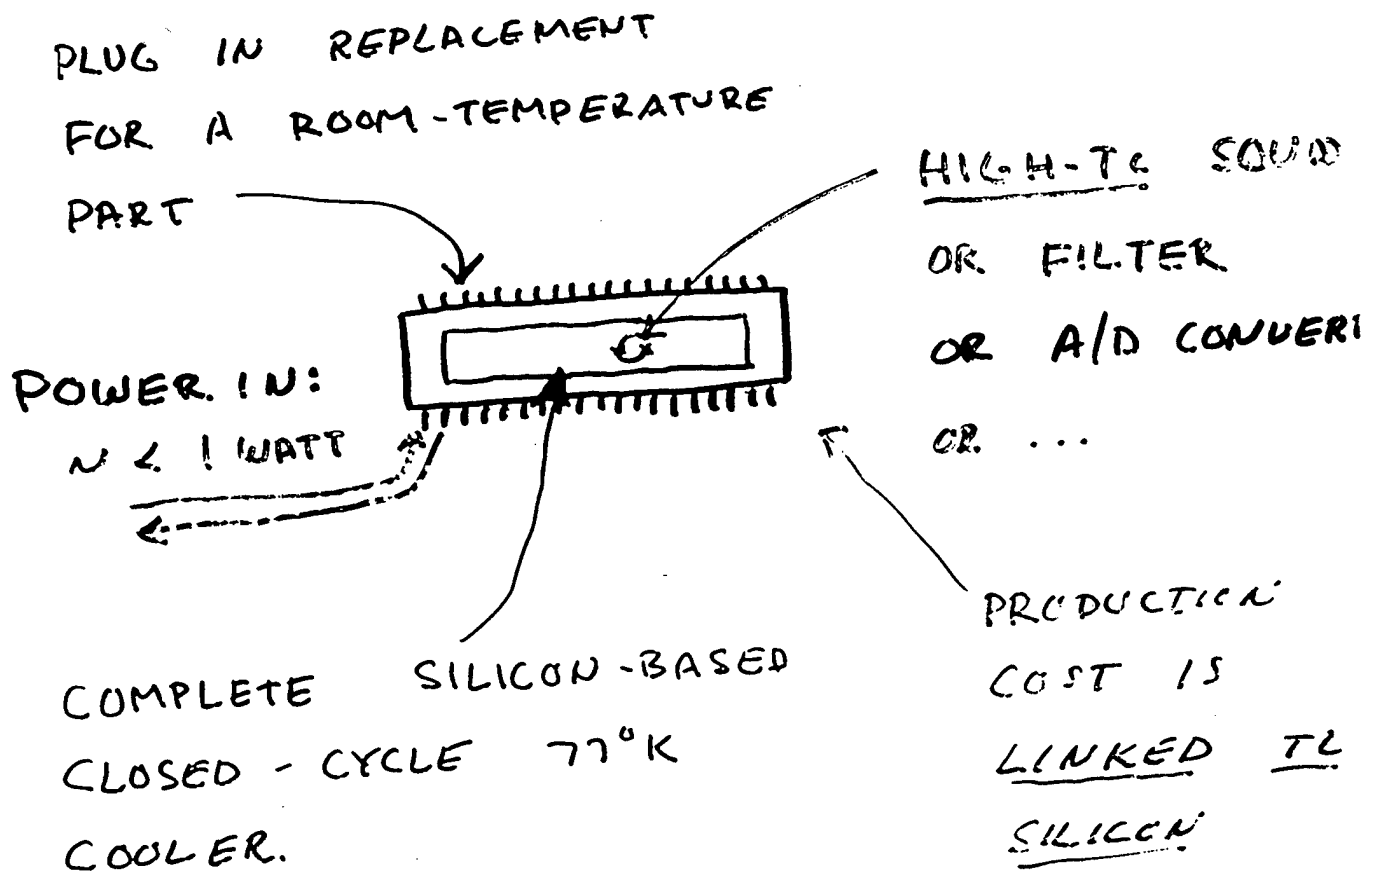 PLUG IN REPLACEMENT
FOR A ROOM-TEMPERATURE
PART
HIGH-Tc SQUID
OR FILTER
OR A/D CONVERT
OR ...
POWER IN:
N < 1 WATT
COMPLETE SILICON-BASED
CLOSED-CYCLE 77°K
COOLER.
PRODUCTION
COST IS
LINKED TO
SILICON